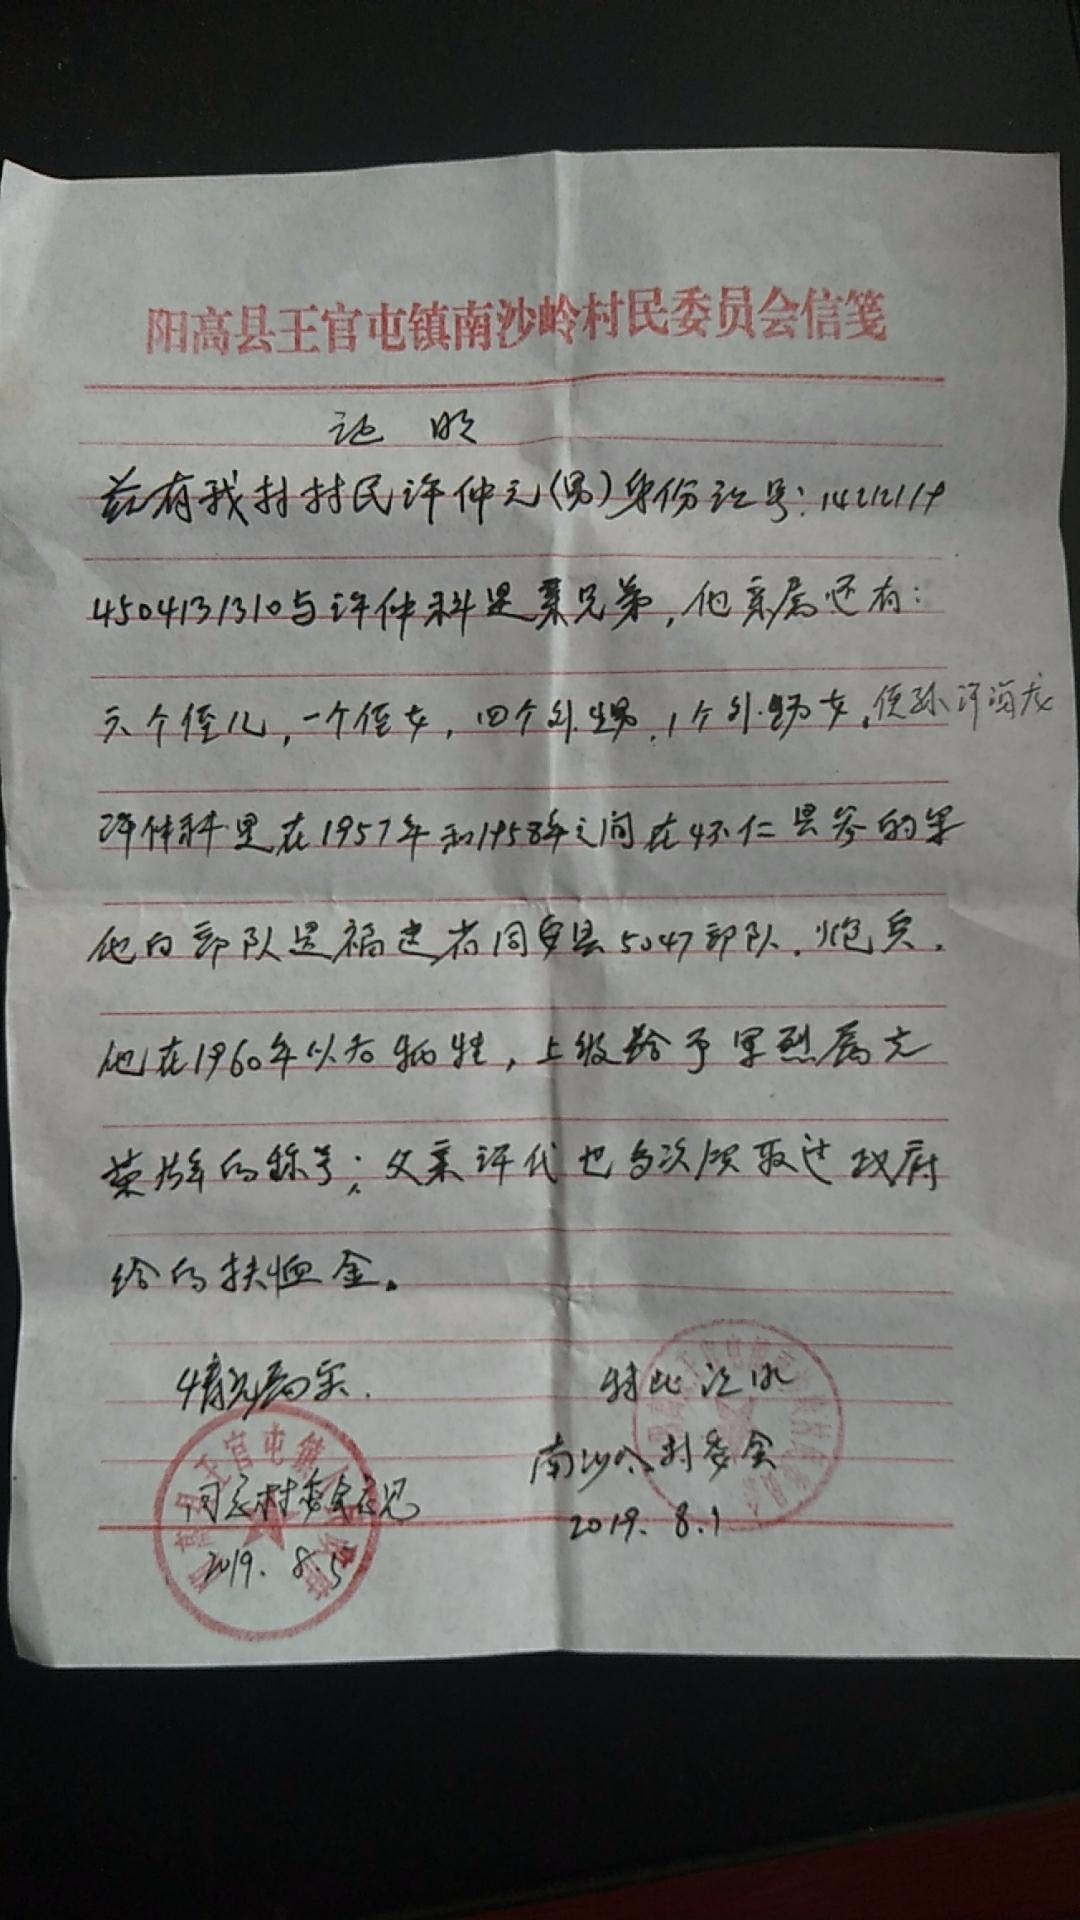 阳高县王官屯镇南沙岭村民委员会信笺
证 明
兹有我村村民许仲元(男)身份证号:14212119
4504131310与许仲科是亲兄弟,他亲属还有:
六个侄儿,一个侄女,四个外甥,1个外甥女,侄孙许海龙
许仲科是在1957年和1958年之间在怀仁县参的军
他的部队是福建省同安县5047部队.炮兵.
他在1960年以后牺牲,上级给予军烈属光
荣 的称号;父亲许代也多次领取过政府
给的扶恤金。
情况属实.
特此证明
同意村委会意见
南沙岭村委会
2019.8.5
2019.8.1
王官屯镇